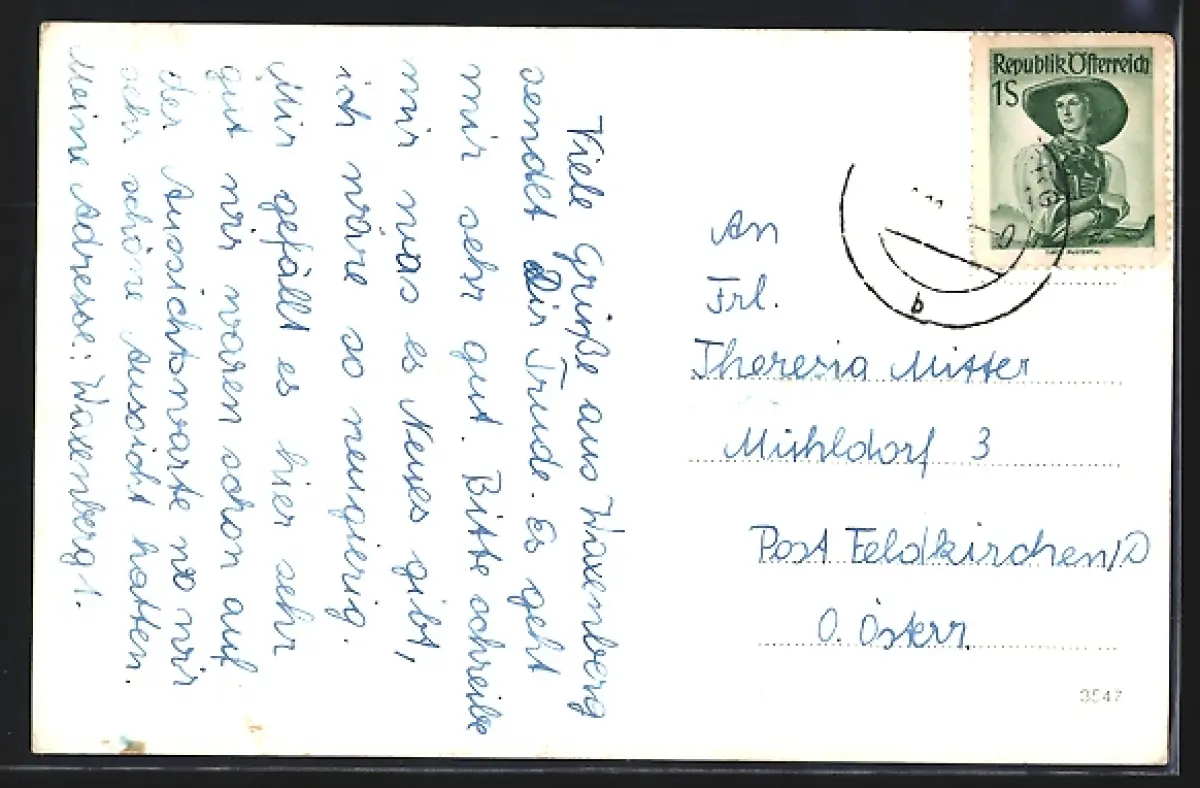 Viele Grüße aus Waxenberg
sendet Dir Trude. Es geht
mir sehr gut. Bitte schreibe
mir was es Neues gibt,
ich wäre so neugierig.
Mir gefällt es hier sehr
gut wir waren schon auf
der Aussichtswarte wo wir
sehr schöne Aussicht hatten.
Meine Adresse: Waxenberg 1.
Republik Österreich
1S
b
An
Frl.
Theresia Mitter
Mühldorf 3
Post Feldkirchen/D
O. Österr.
3547